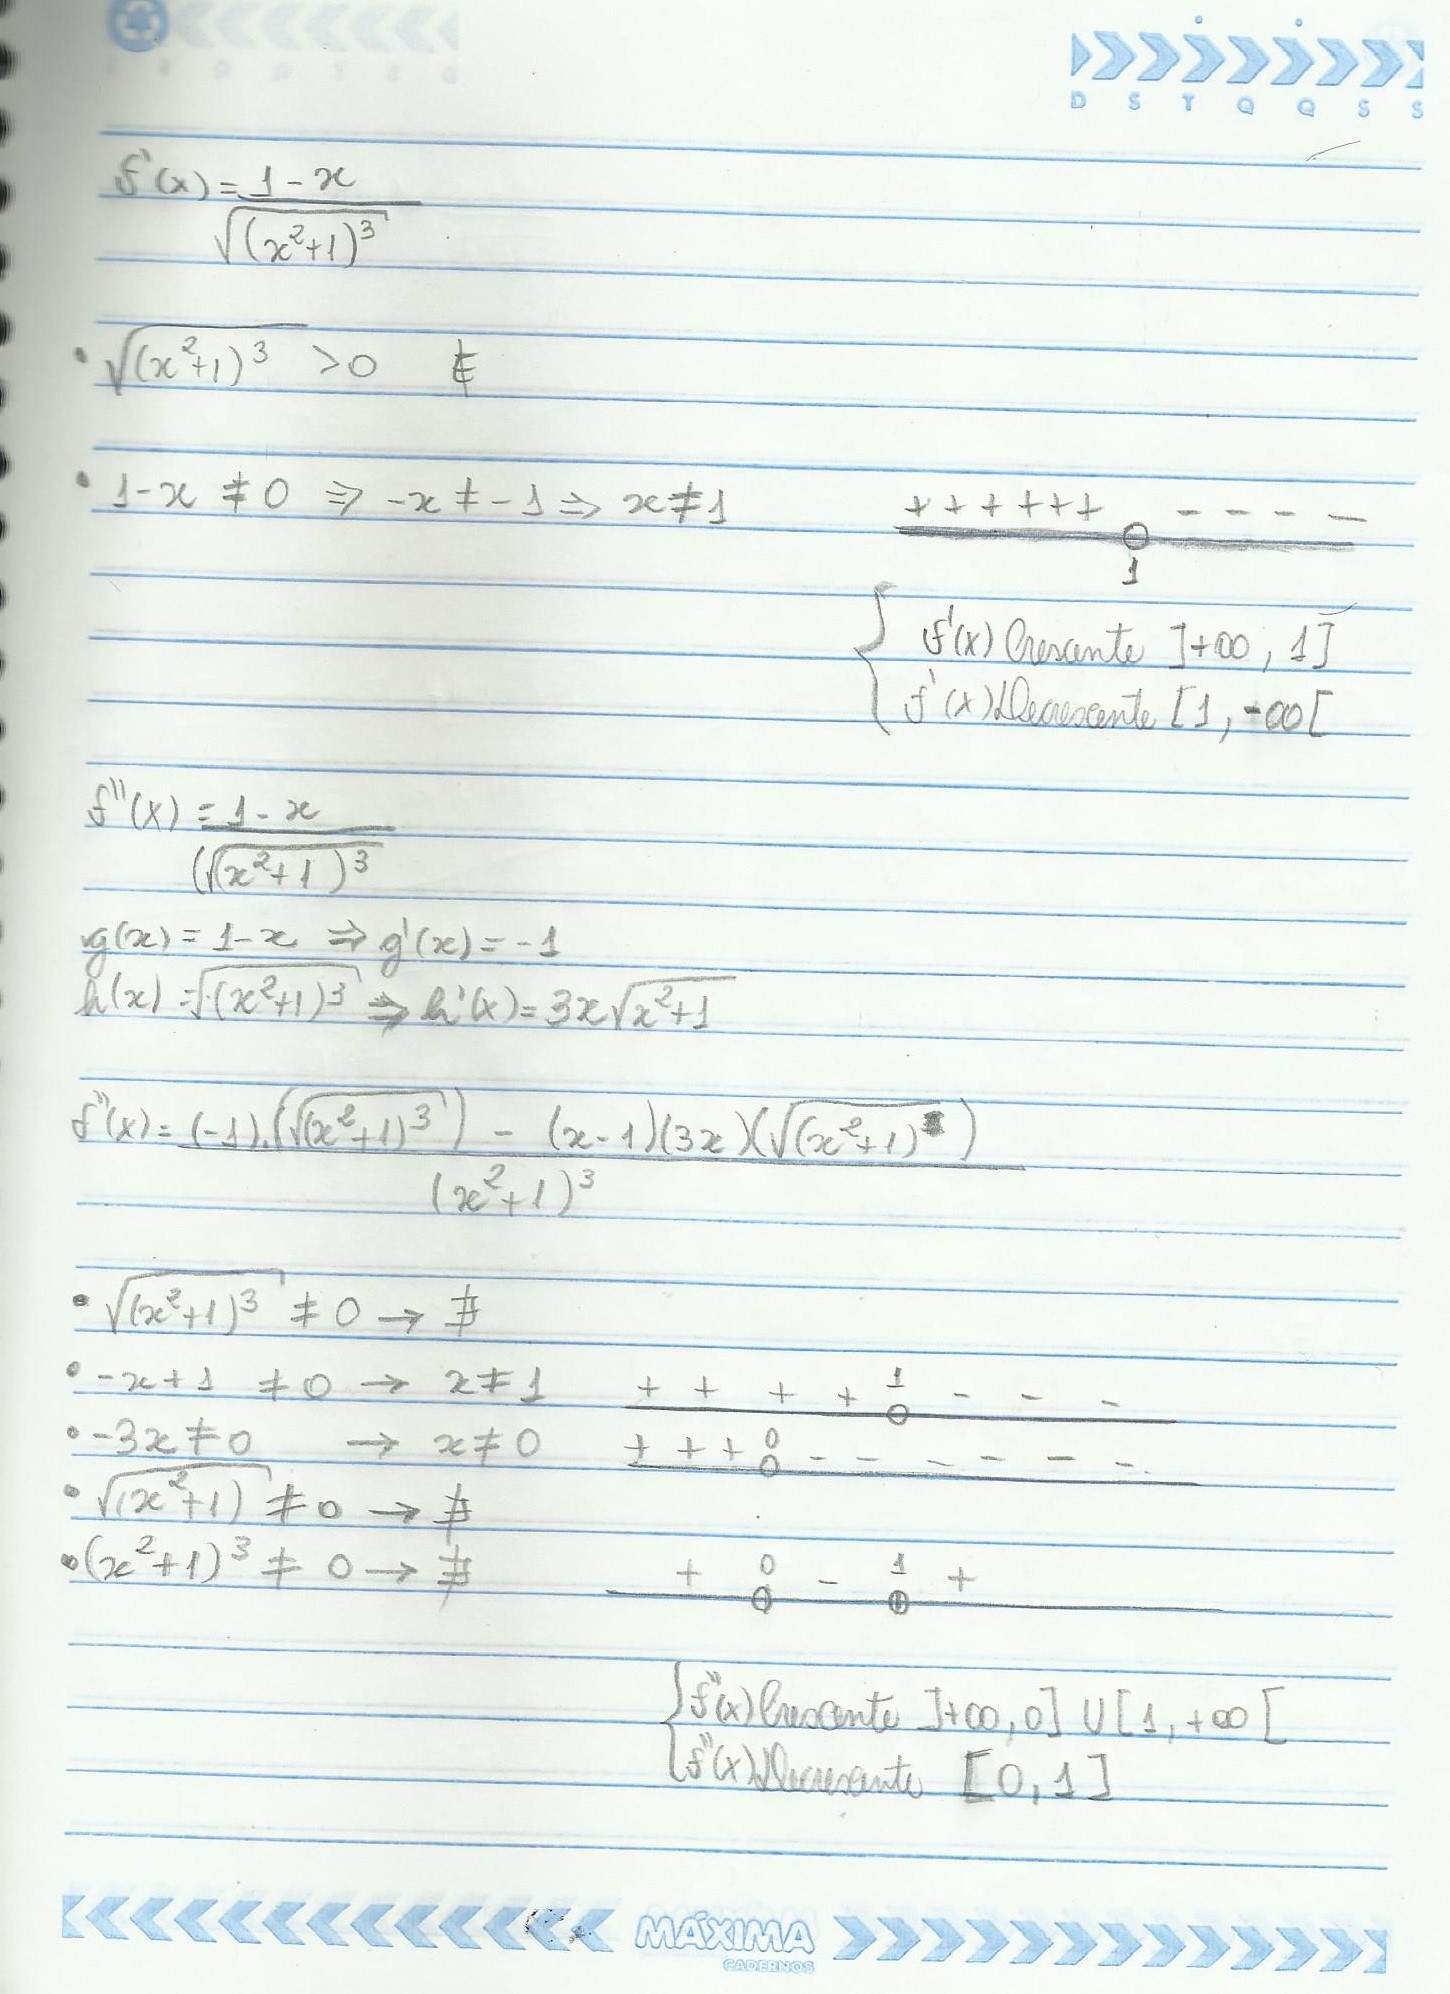 D S T Q Q S S
f'(x) = 1 - x
√(x²+1)³
• √(x²+1)³ > 0 ∄
• 1-x ≠ 0 ⇒ -x ≠ -1 ⇒ x ≠ 1 + + + + + + - - - -
1
{ f'(x) Crescente ]+∞, 1]
f'(x) Decrescente [1, -∞[
f''(x) = 1 - x
(√(x²+1)³
g(x) = 1-x ⇒ g'(x) = -1
h(x) = √(x²+1)³ ⇒ h'(x) = 3x√x²+1
f''(x) = (-1).(√(x²+1)³) - (x-1)(3x)(√(x²+1))
(x²+1)³
• √(x²+1)³ ≠ 0 → ∄
• -x+1 ≠ 0 → x ≠ 1 + + + + 1 - - -
• -3x ≠ 0 → x ≠ 0 + + + 0 - - - - - -
• √(x²+1) ≠ 0 → ∄
• (x²+1)³ ≠ 0 → ∄ + 0 - 1 +
{ f''(x) Crescente ]+∞, 0] U [1, +∞[
f''(x) Decrescente [0, 1]
MÁXIMA
CADERNOS